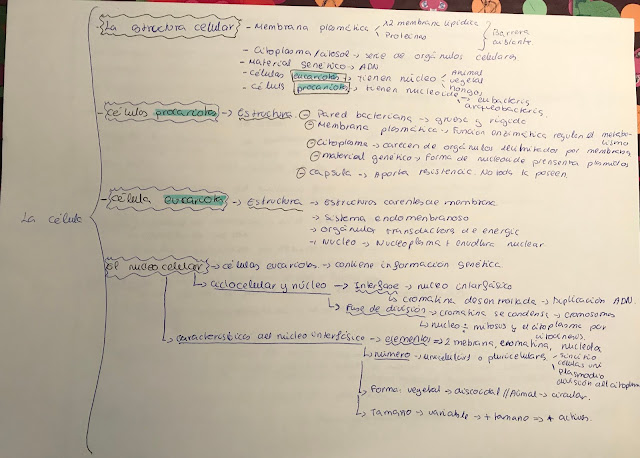 La estructura celular - Membrana plasmática x2 membrana lipídica
Proteínas
Barrera ambiente
- Citoplasma/citosol → serie de orgánulos celulares
- Material genético → ADN
- células eucariotas → tienen núcleo Animal
vegetal
hongos
- céluls procariotas → tienen nucleoide → eubacteris
arqueobacteris
La célula
- células procariotas → Estructura - Pared bacteriana → gruesa y rígida
- Membrana plasmática → Función enzimática regulen el metabolismo
- Citoplasma → carecen de orgánulos delimitador por membrana
- material genético → forma de nucleoide presenta plasmidos
- capsula → Aporta resistencia. No toda la poseen
- célula eucariota → Estructura → Estructuras carentes de membrana
→ Sistema endomembranoso
→ orgánulos transductores de energía
→ Núcleo → Nucleoplasma + envoltura nuclear
El nucleo celular → células eucariotas → contiene informacion genética
↳ ciclo celular y núcleo → Interfase → nucleo interfásico
↳ cromatina desenrollada → Duplicación ADN.
↳ Fase de division → cromatina se condensa → cromosomas
↳ nucleo ÷ mitosis y el citoplasma por citocinesis.
↳ características del núcleo interfásico → elementos → 2 mebrana, cromatina, nucleolo
↳ número → unicelulars o pluricelulares → sincitio
células uni
plasmodio
división del citoplasma
→ Forma: vegetal → discoidal // Animal → circular.
↳ Tamaño → variable → + tamano → + activos.